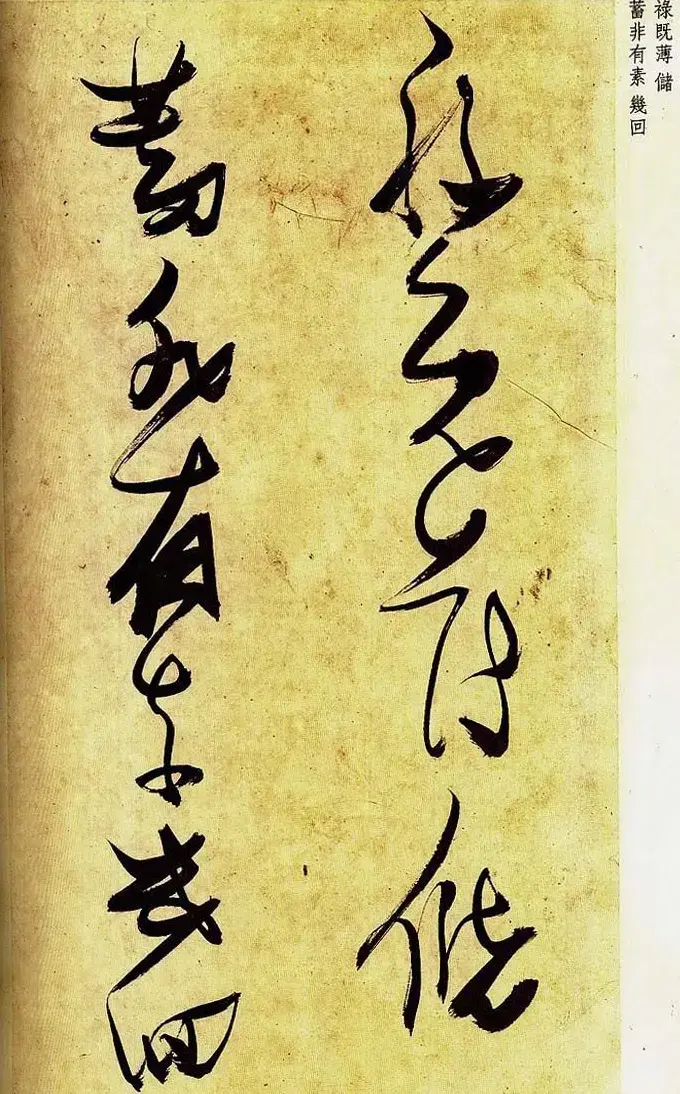 祿既薄 儲
蓄非有素 幾回
祿既薄儲
蓄非有素幾回